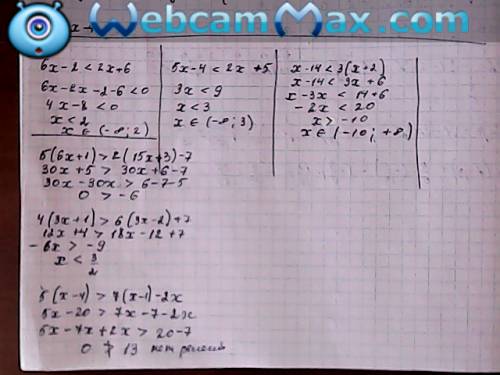 WebcamMax.com
x
6x-2<2x+6
6x-2x-2-6<0
4x-8<0
x<2
x ∈ (-∞; 2)
5x-4<2x+5
3x<9
x<3
x ∈ (-∞; 3)
x-14<3(x+2)
x-14<3x+6
x-3x<14+6
-2x<20
x>-10
x ∈ (-10; +∞)
5(6x+1)>2(15x+3)-7
30x+5>30x+6-7
30x-30x>6-7-5
0>-6
4(3x+1)>6(3x-2)+7
12x+4>18x-12+7
-6x>-9
x<3/2
5(x-4)>7(x-1)-2x
5x-20>7x-7-2x
5x-7x+2x>20-7
0 ≯ 13 нет решень